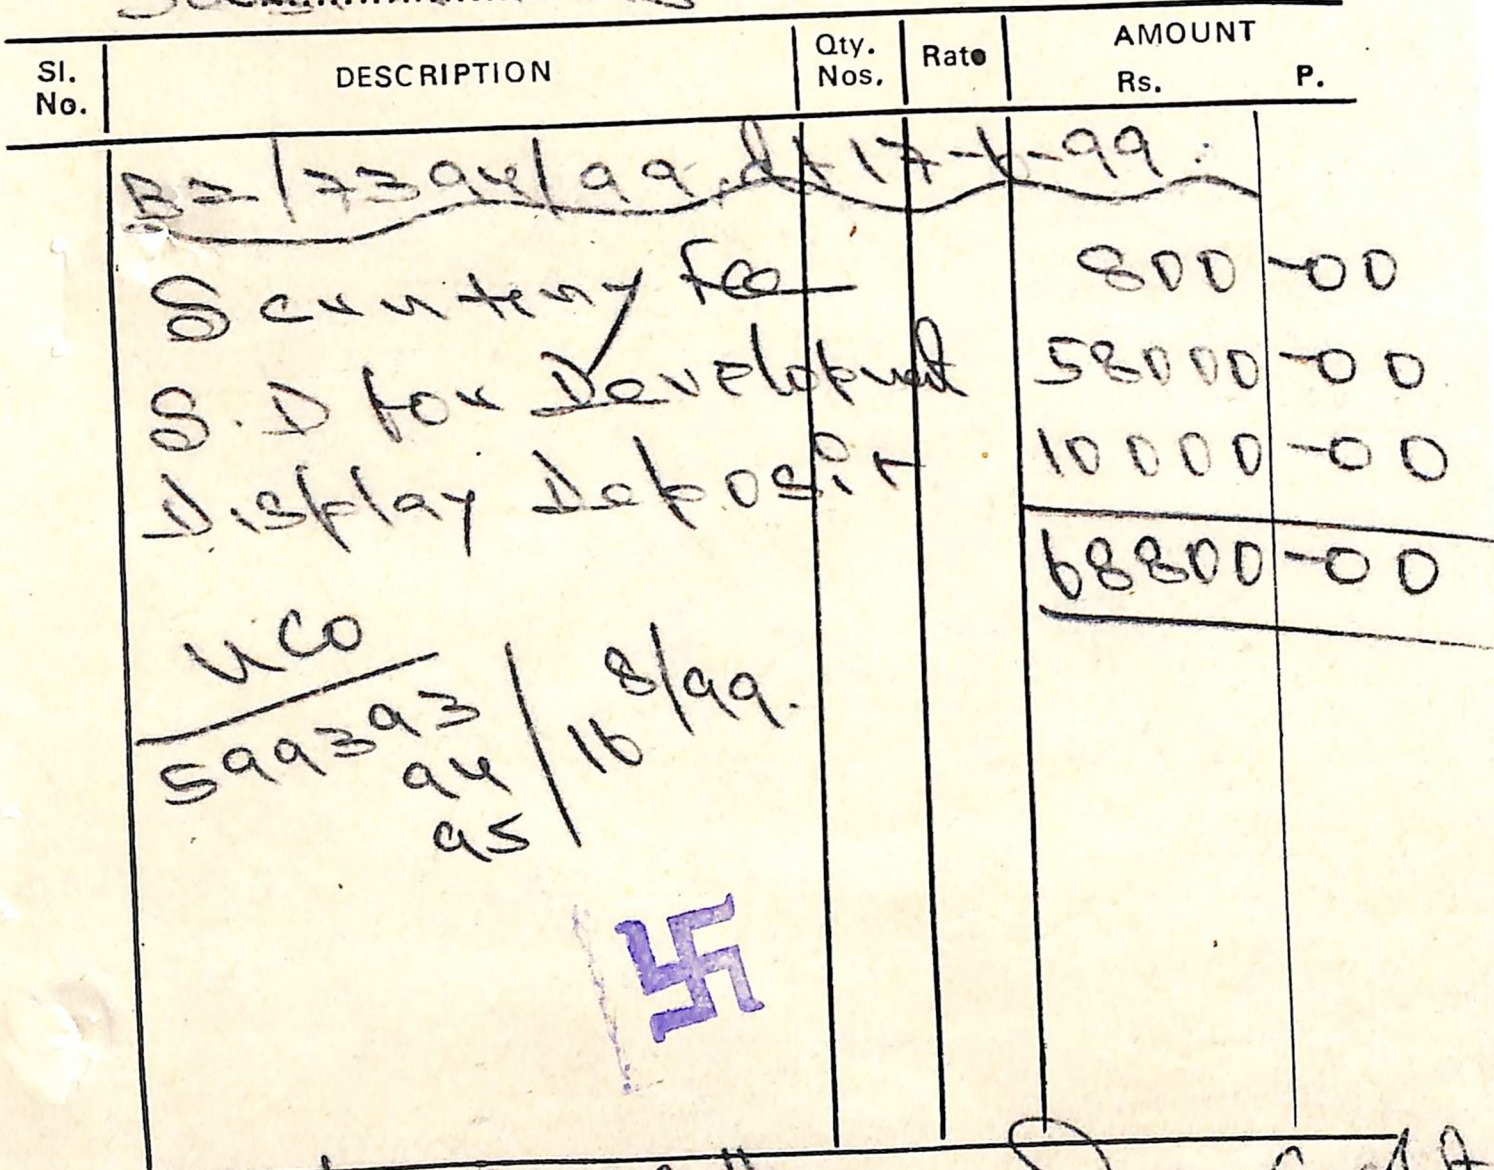 Sl. No. DESCRIPTION Qty. Nos. Rate AMOUNT Rs. P.
B2/7394/99.dt 17-6-99
Scrutiny Fee 800-00
S.D for Development 58000-00
Display Deposit 10000-00
68800-00
UCO
599393
94
95
16/8/99.